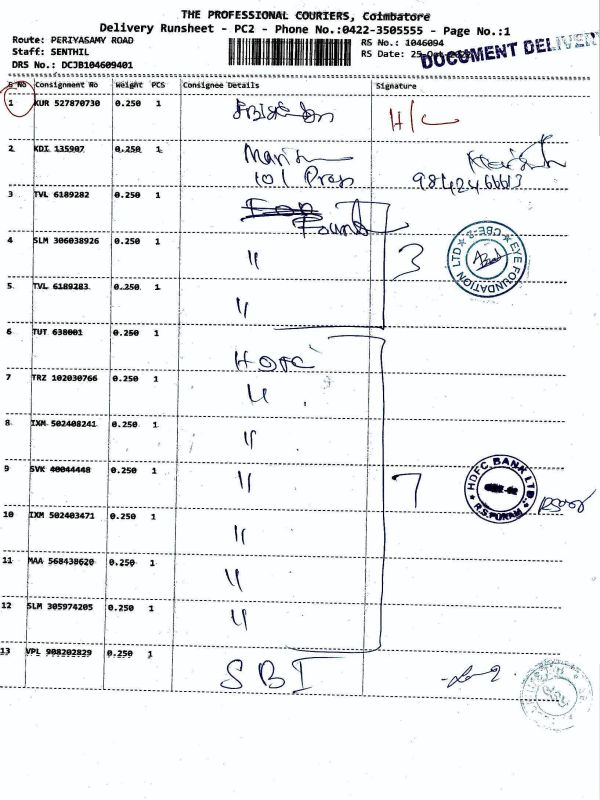 THE PROFESSIONAL COURIERS, Coimbatore
Delivery Runsheet - PC2 - Phone No.:0422-3505555 - Page No.:1
Route: PERIYASAMY ROAD
Staff: SENTHIL
DRS No.: DCJB104609401
RS No.: 1046094
RS Date: 25-Oct
DOCUMENT DELIVERY
S No Consignment No Weight PCS Consignee Details Signature
1 KUR 527870730 0.250 1 H/C
2 KDI 135907 0.250 1
101 Pran 9842466613
3 TVL 6189282 0.250 1
Found
4 SLM 306038926 0.250 1 " 3
CBE-2 EYE FOUNDATION LTD
5 TVL 6189283 0.250 1 "
6 TUT 638001 0.250 1 HDFC
7 TRZ 102030766 0.250 1 "
8 IXM 502408241 0.250 1 "
9 SVK 40044448 0.250 1 " 7
HDFC BANK LTD.
R.S.PURAM
10 IXM 502403471 0.250 1 "
11 MAA 568438620 0.250 1 "
12 SLM 305974205 0.250 1 "
13 VPL 908202829 0.250 1 SBI